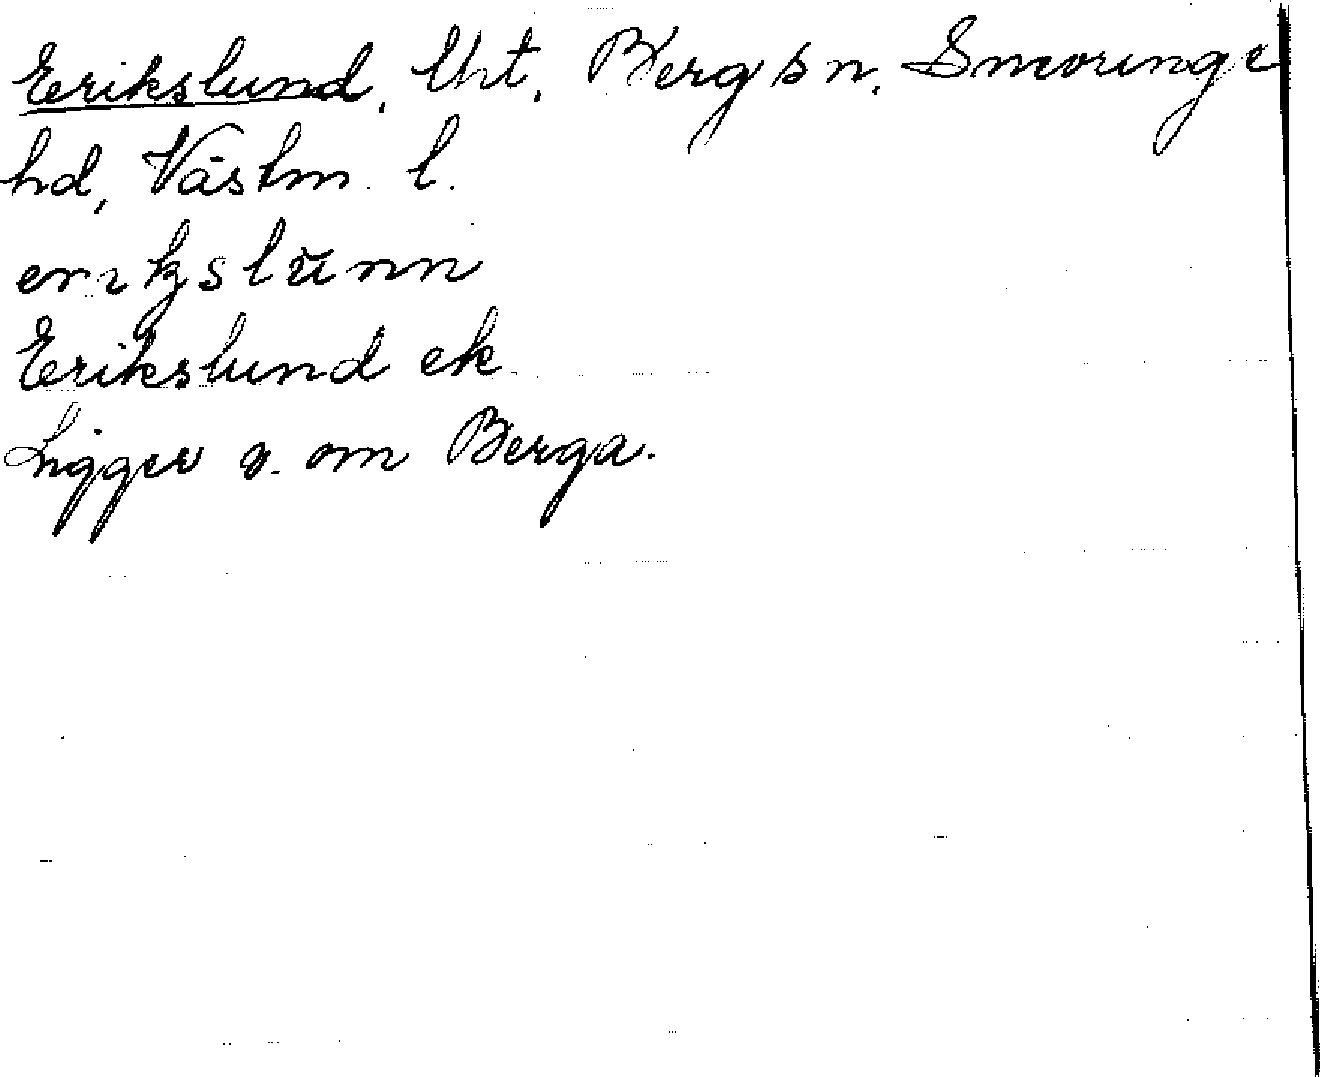 Erikslund, lht, Berg sn, Snevringe
hd, Västm. l.
erıkslŭnn
Erikslund ek
Ligger v. om Berga.